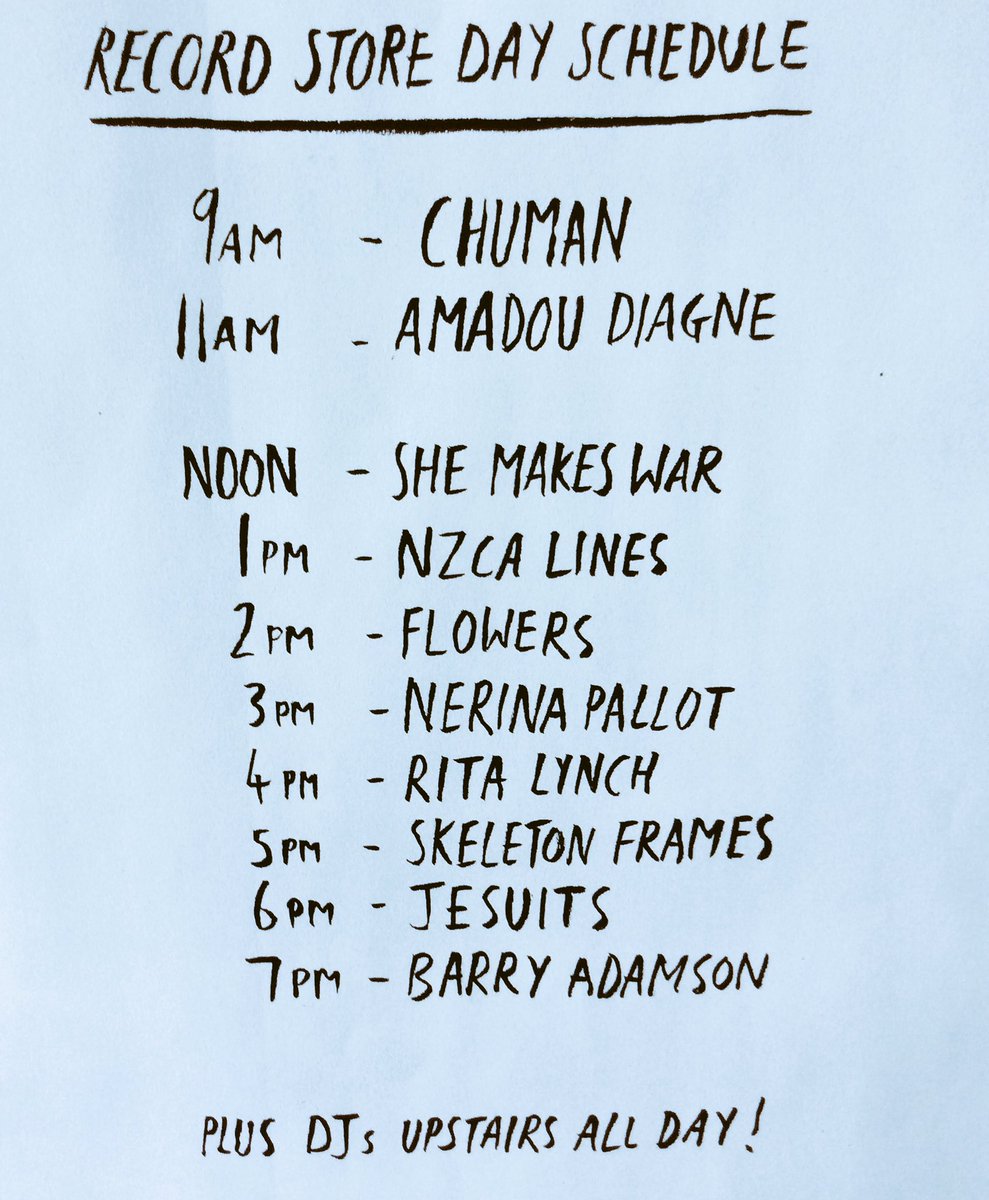 RECORD STORE DAY SCHEDULE
9AM - CHUMAN
11AM - AMADOU DIAGNE
NOON - SHE MAKES WAR
1PM - NZCA LINES
2PM - FLOWERS
3PM - NERINA PALLOT
4PM - RITA LYNCH
5PM - SKELETON FRAMES
6PM - JESUITS
7PM - BARRY ADAMSON
PLUS DJs UPSTAIRS ALL DAY!